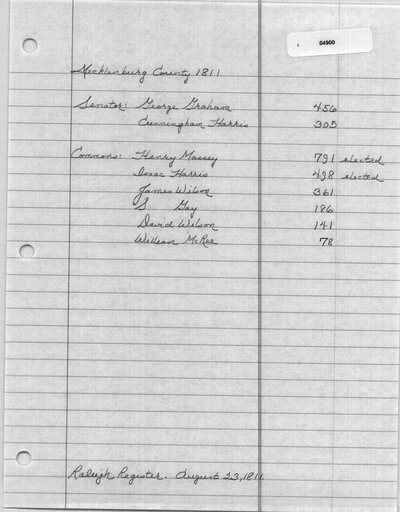 04900
Mecklenburg County 1811
Senator: George Graham 456
Cunningham Harris 305
Commons: Henry Massey 791 elected
Isaac Harris 498 elected
James Wilson 361
S Gay 186
David Wilson 141
William McRee 78
Raleigh Register. August 23, 1811